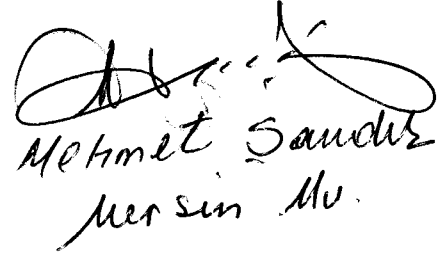 Mehmet Şandır
Mersin Mv.